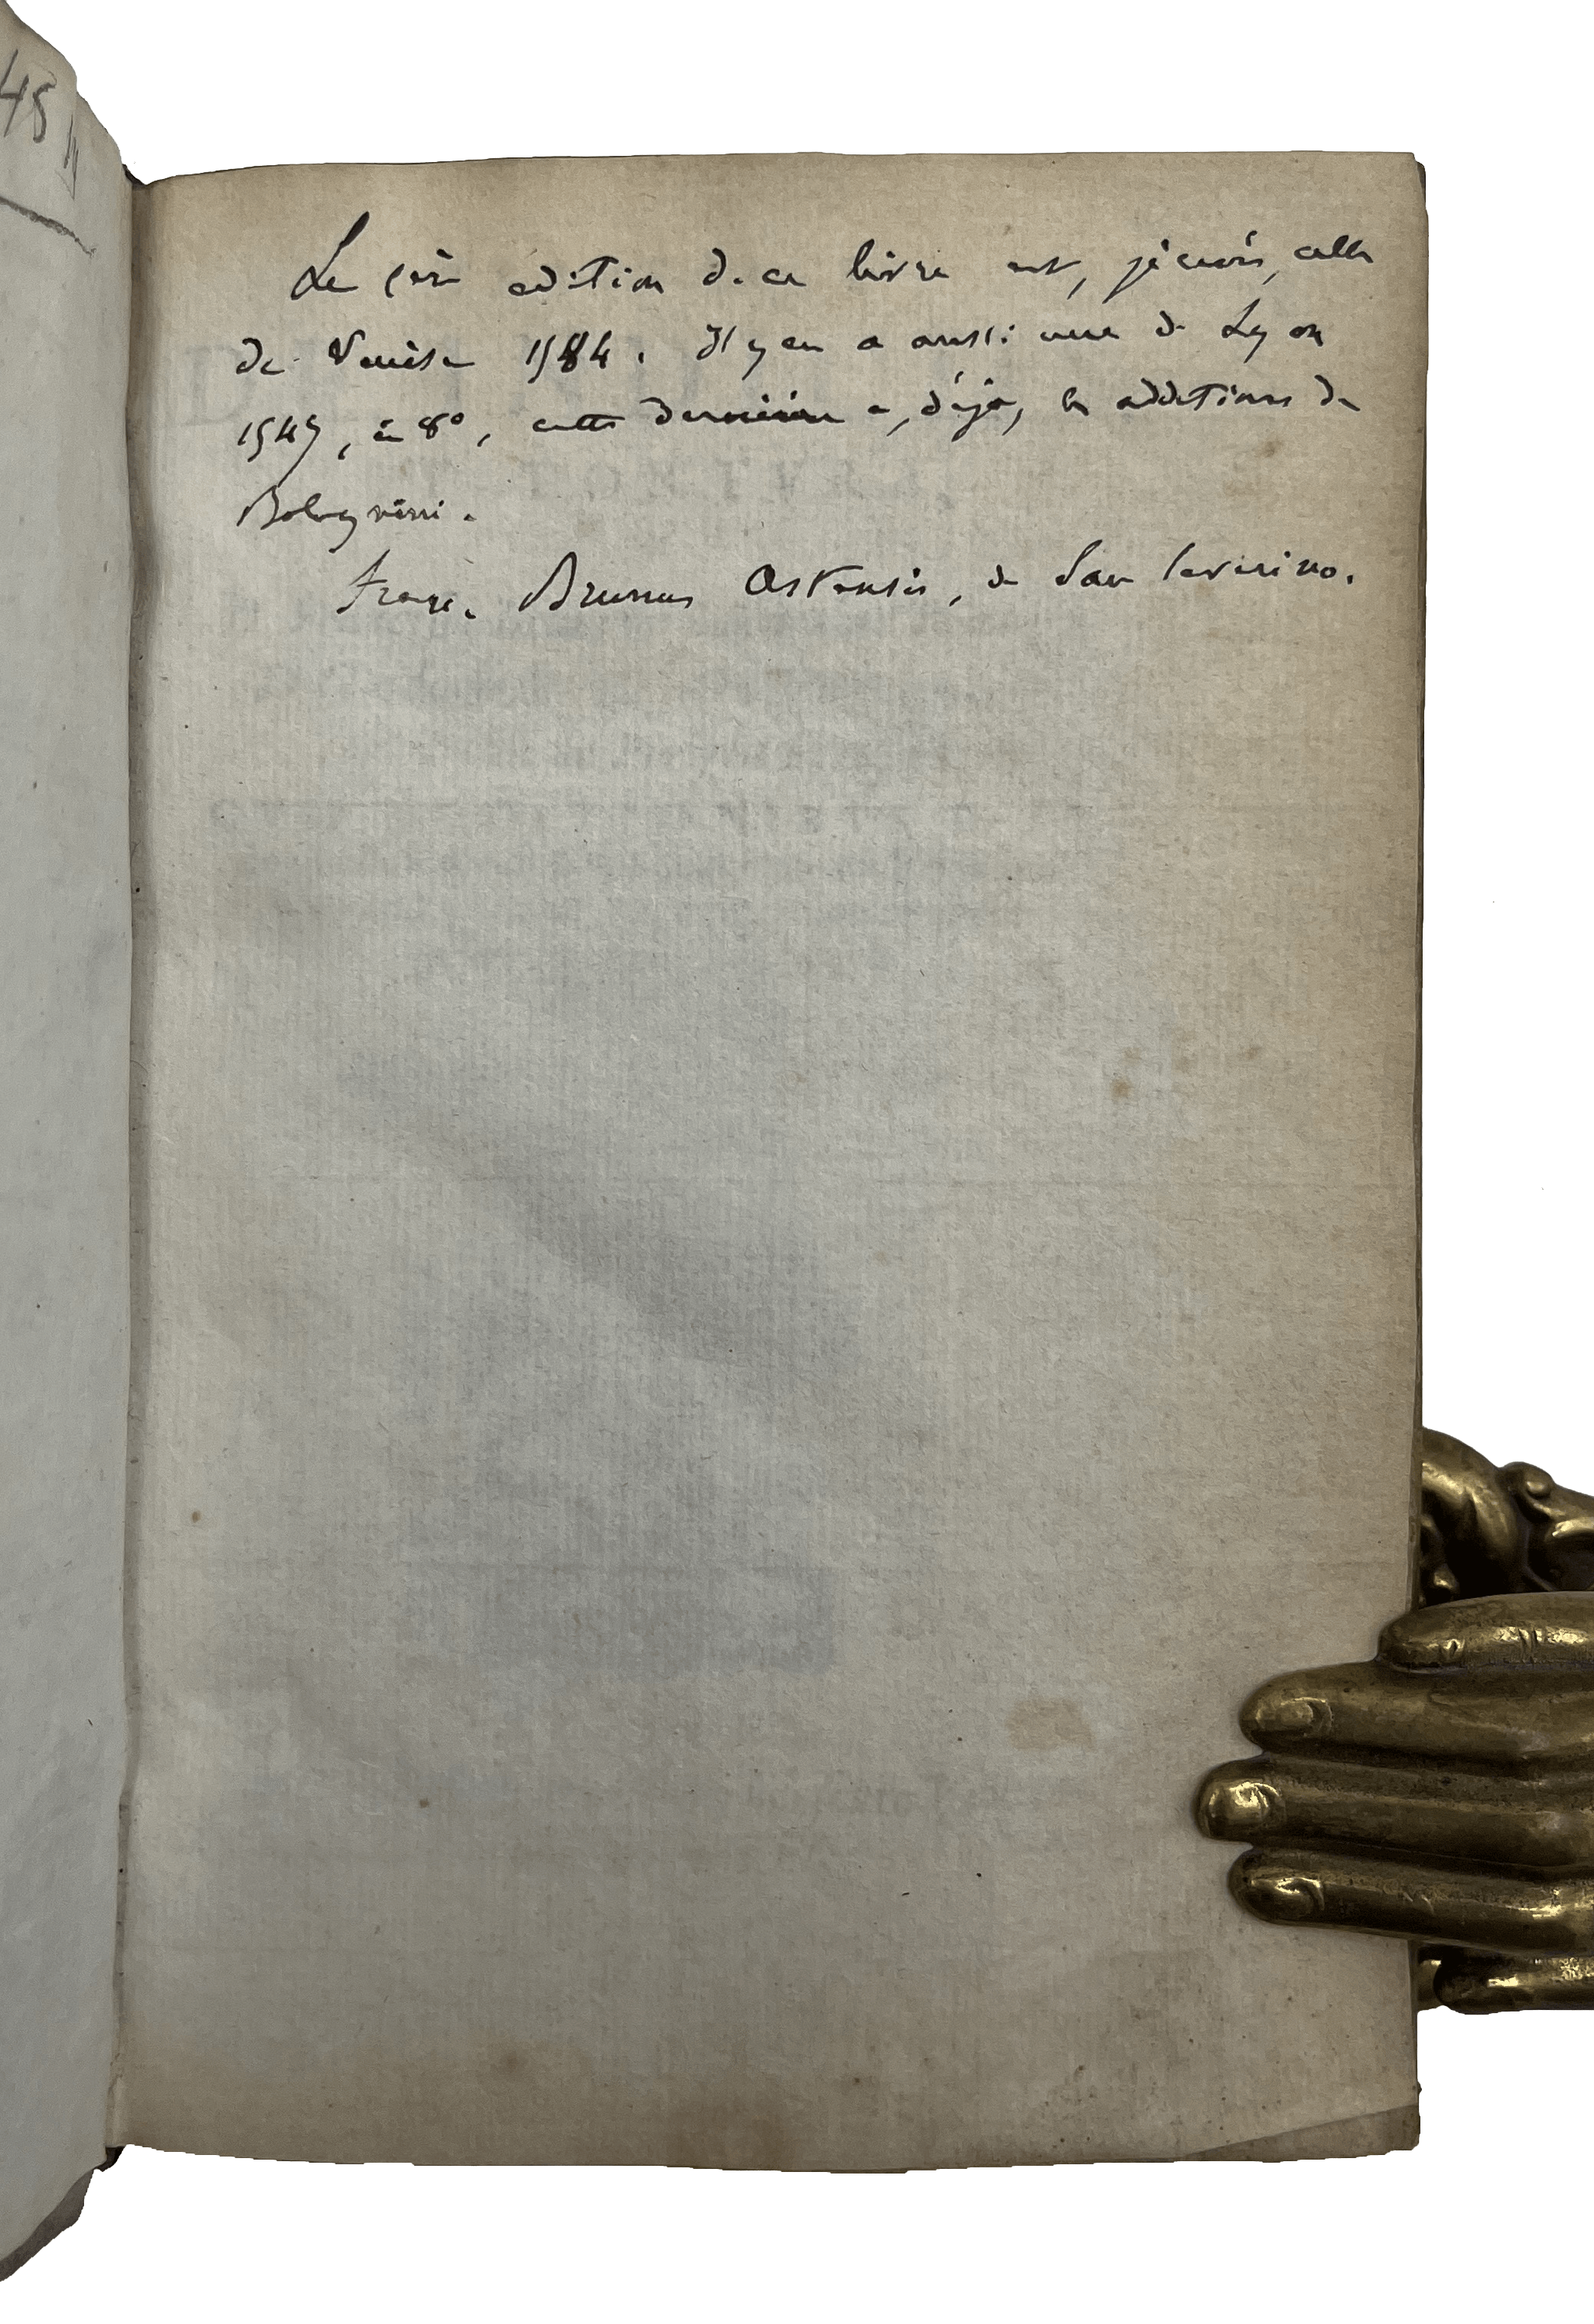 45
La 1ère édition de ce livre est, je crois, celle
de Venise 1544. Il y en a aussi une de Lyon
1547, in 8°, cette dernière a, déjà, les additions de
Bolognini.
Franc. Brunus Astensis, de San Severino.